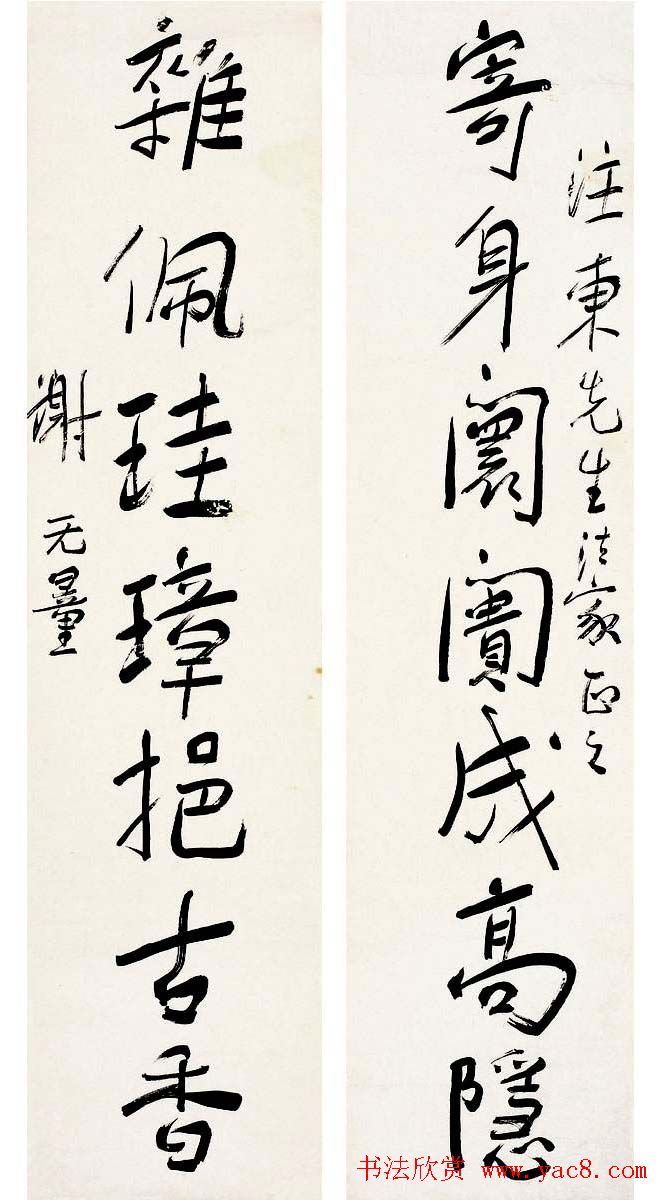 寄身闤闠成高隱
東先生法家正之
雜佩珪璋挹古香
謝无量
书法欣赏 www.yac8.com